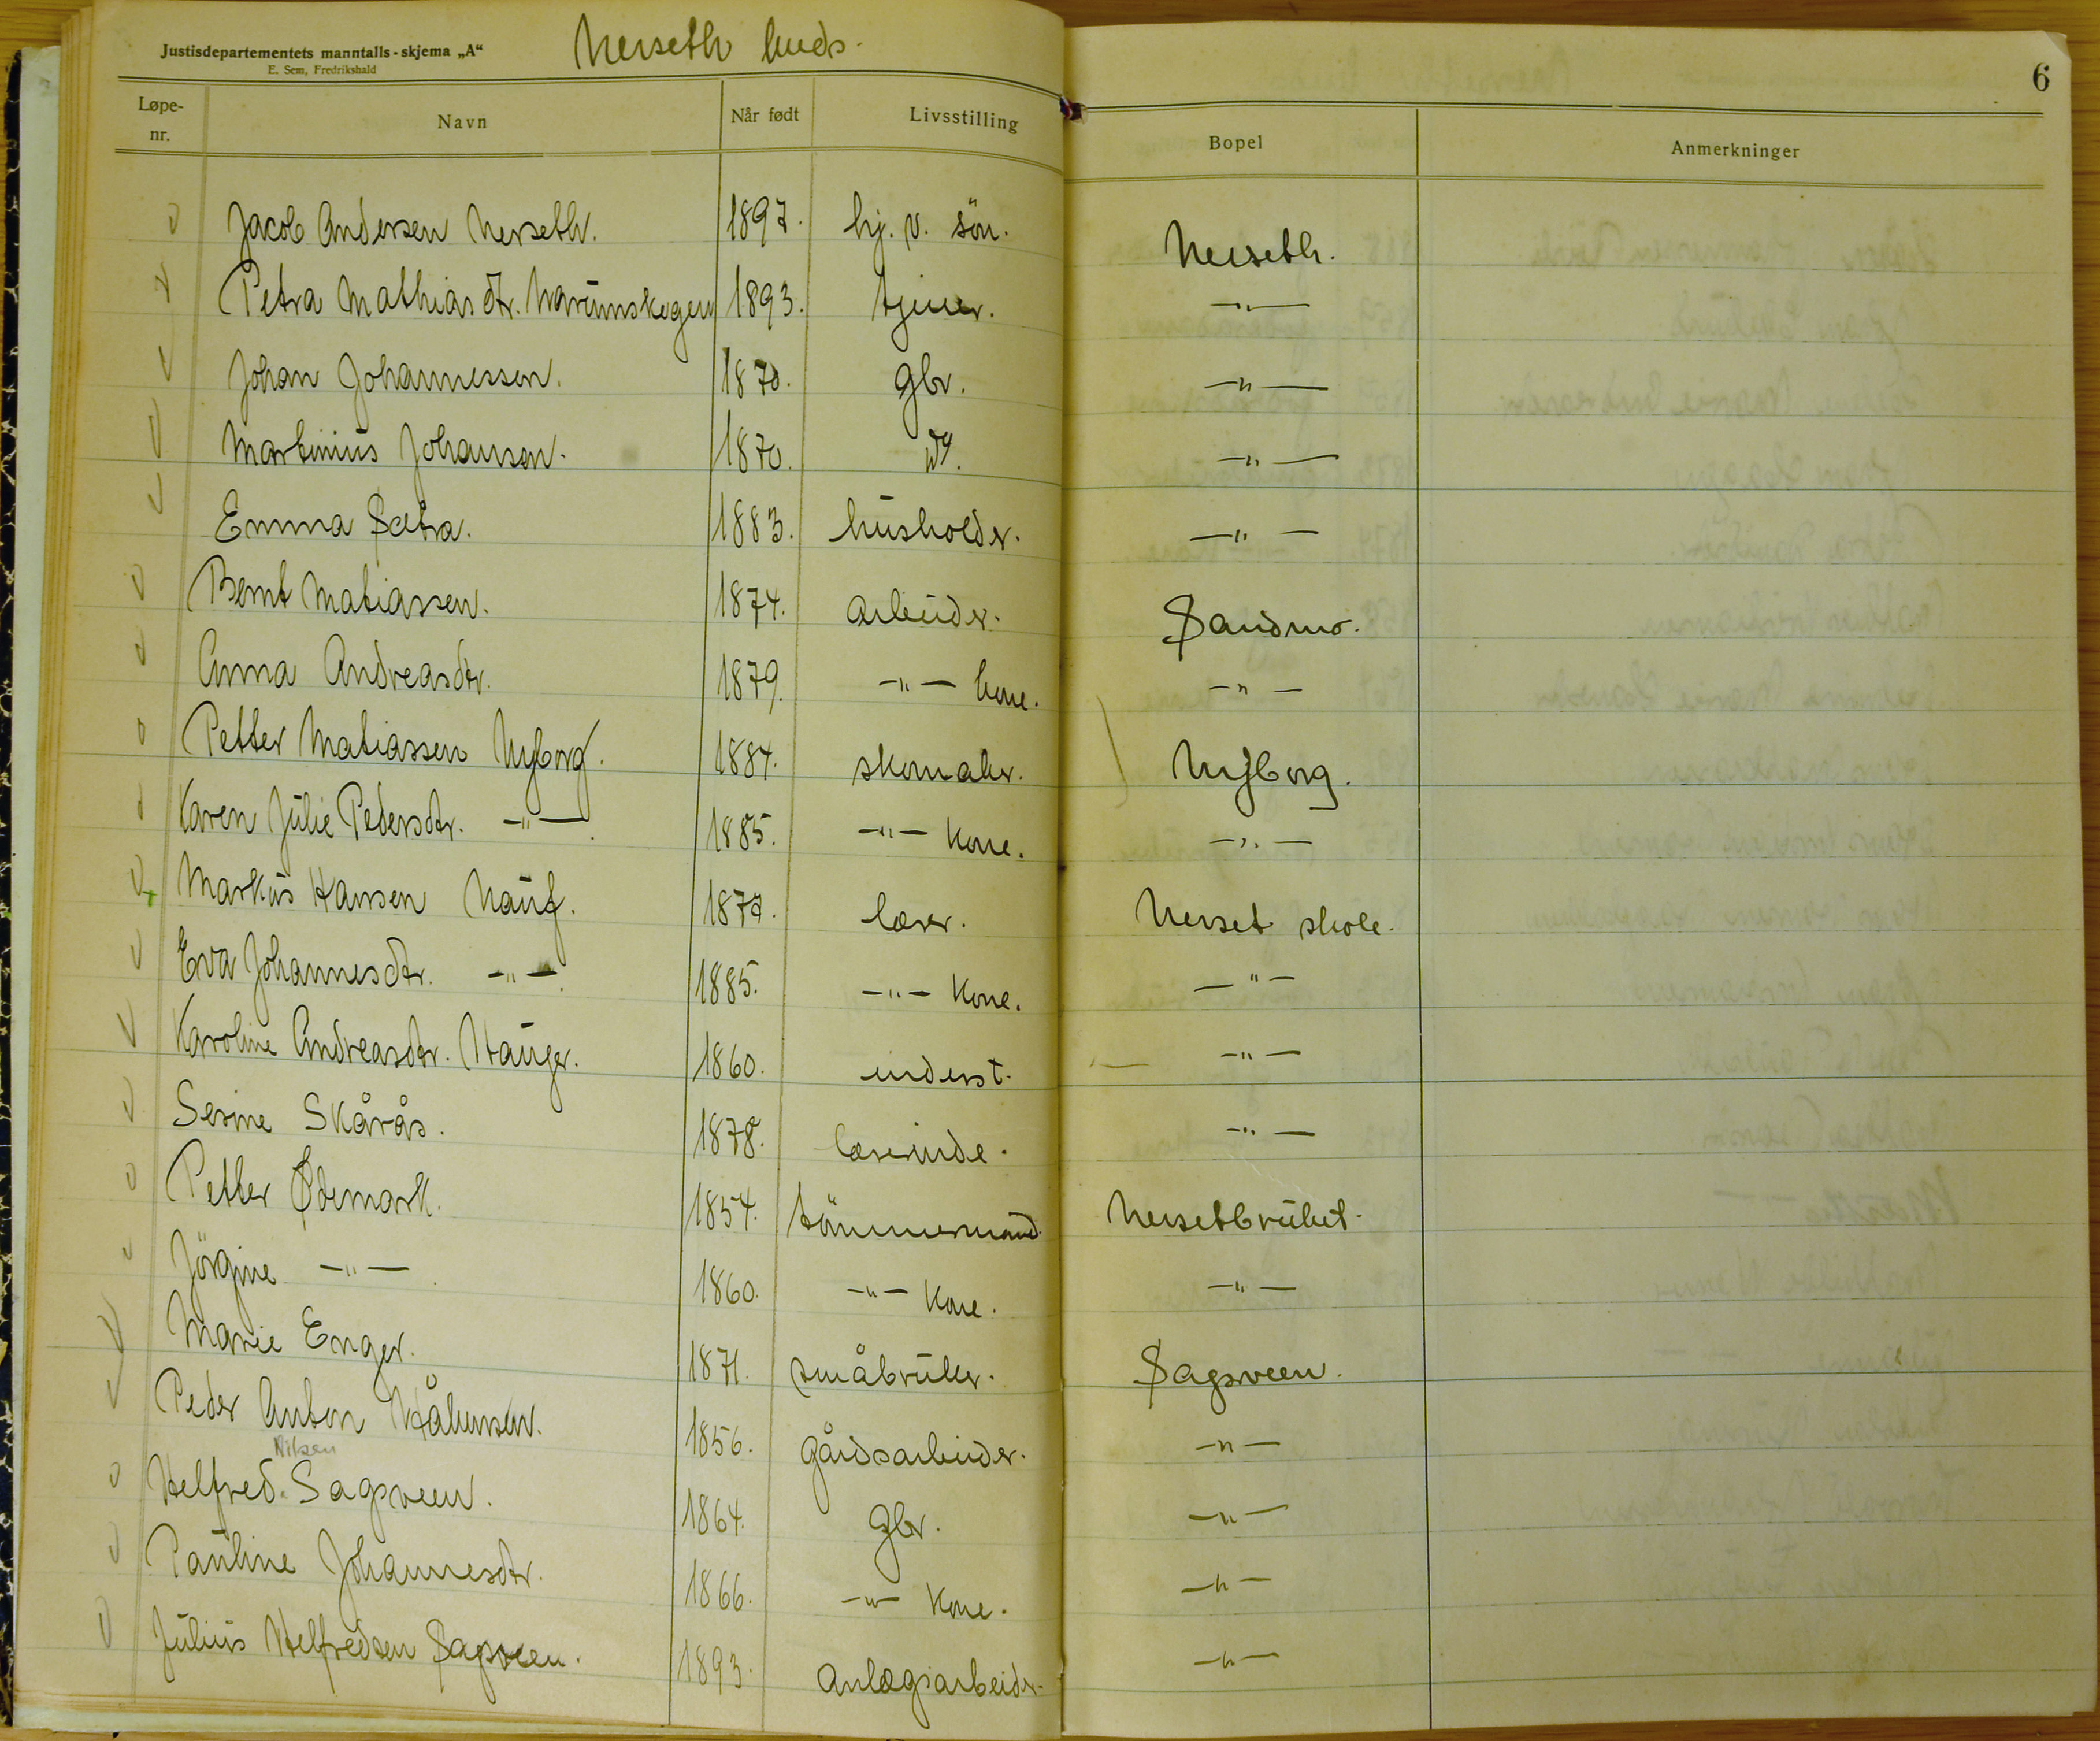 Justisdepartementets manntalls-skjema „A“
E. Sem, Fredrikshald
Nerseth kreds.
6
Løpe-nr. Navn Når født Livsstilling Bopel Anmerkninger
Jacob Andersen Nerseth. 1897. hj. v. sön. Nerseth.
Petra Mathiasdtr. 1893. tjener. -"-
Johan Johannessen. 1870. gbr. -"-
Martinius Johansen. 1870. -"-
Emma Sætra. 1883. husholder. -"-
Bernt Matiassen. 1874. arbeider. Sandmo.
Anna Andreasdtr. 1879. -"- kone. -"-
Petter Matiassen Nyborg. 1884. skomaker. Nyborg.
Karen Julie Pedersdtr. -"-. 1885. -"- kone. -"-
Markus Hansen 1877. lærer. Nerset skole.
Eva Johannesdtr. -"-. 1885. -"- kone. -"-
Karoline Andreasdtr. Hauger. 1860. inderst. -"-
Sesine Skårås. 1878. lærerinde. -"-
Petter Ødemark. 1854. tömmermand. Nersetbruket.
Jörgine -"-. 1860. -"- kone. -"-
Marie Enger. 1871. småbruker. Sagsveen.
Peder Anton Håkensen. 1856. gårdsarbeider. -"-
Nilsen
Helfred Sagsveen. 1864. gbr. -"-
Pauline Johannesdtr. 1866. -"- kone. -"-
Julius Helfredsen Sagsveen. 1893. Anlægsarbeider. -"-